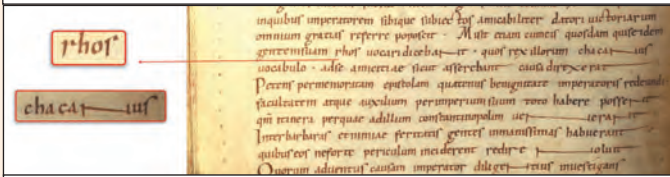 rhos
chacanus
inquibus imperatorem sibique subiectos amicabiliter datori uictoriarum
omnium gratias referre poposcit · Misit etiam cum eis quosdam qui se idem
gentem suam rhos uocari dicebant · quos rex illorum chacanus
uocabulo · ad se amicitiae sicut asserebant causa direxerat
Petens per memoratam epistolam quatenus benignitate imperatoris redeundi
facultatem atque auxilium per imperium suum toto habere possent
qm itinera per quae ad illum constantinopolim uenerant
Inter barbaras et nimiae feritatis gentes inmanissimas habuerant
quibus eos ne forte periculum inciderent redire noluit
Quorum aduentus causam imperator diligentius inuestigans